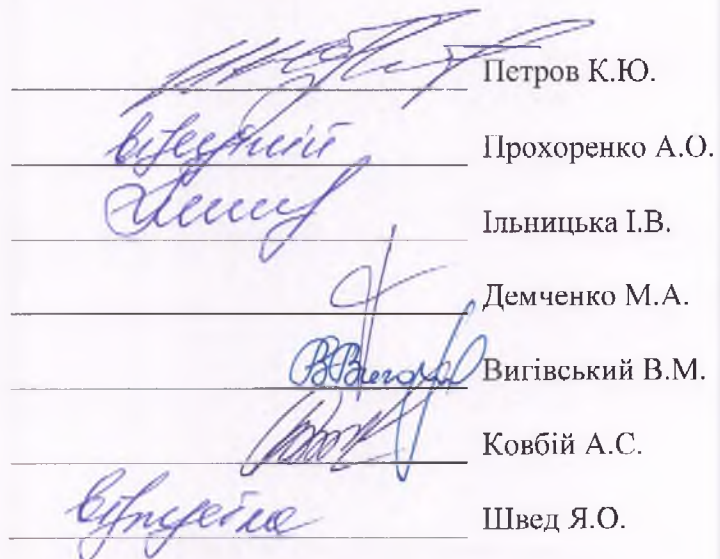 Петров К.Ю.
відсутній Прохоренко А.О.
Ільницька І.В.
Демченко М.А.
Вигівський В.М.
Ковбій А.С.
Швед Я.О.